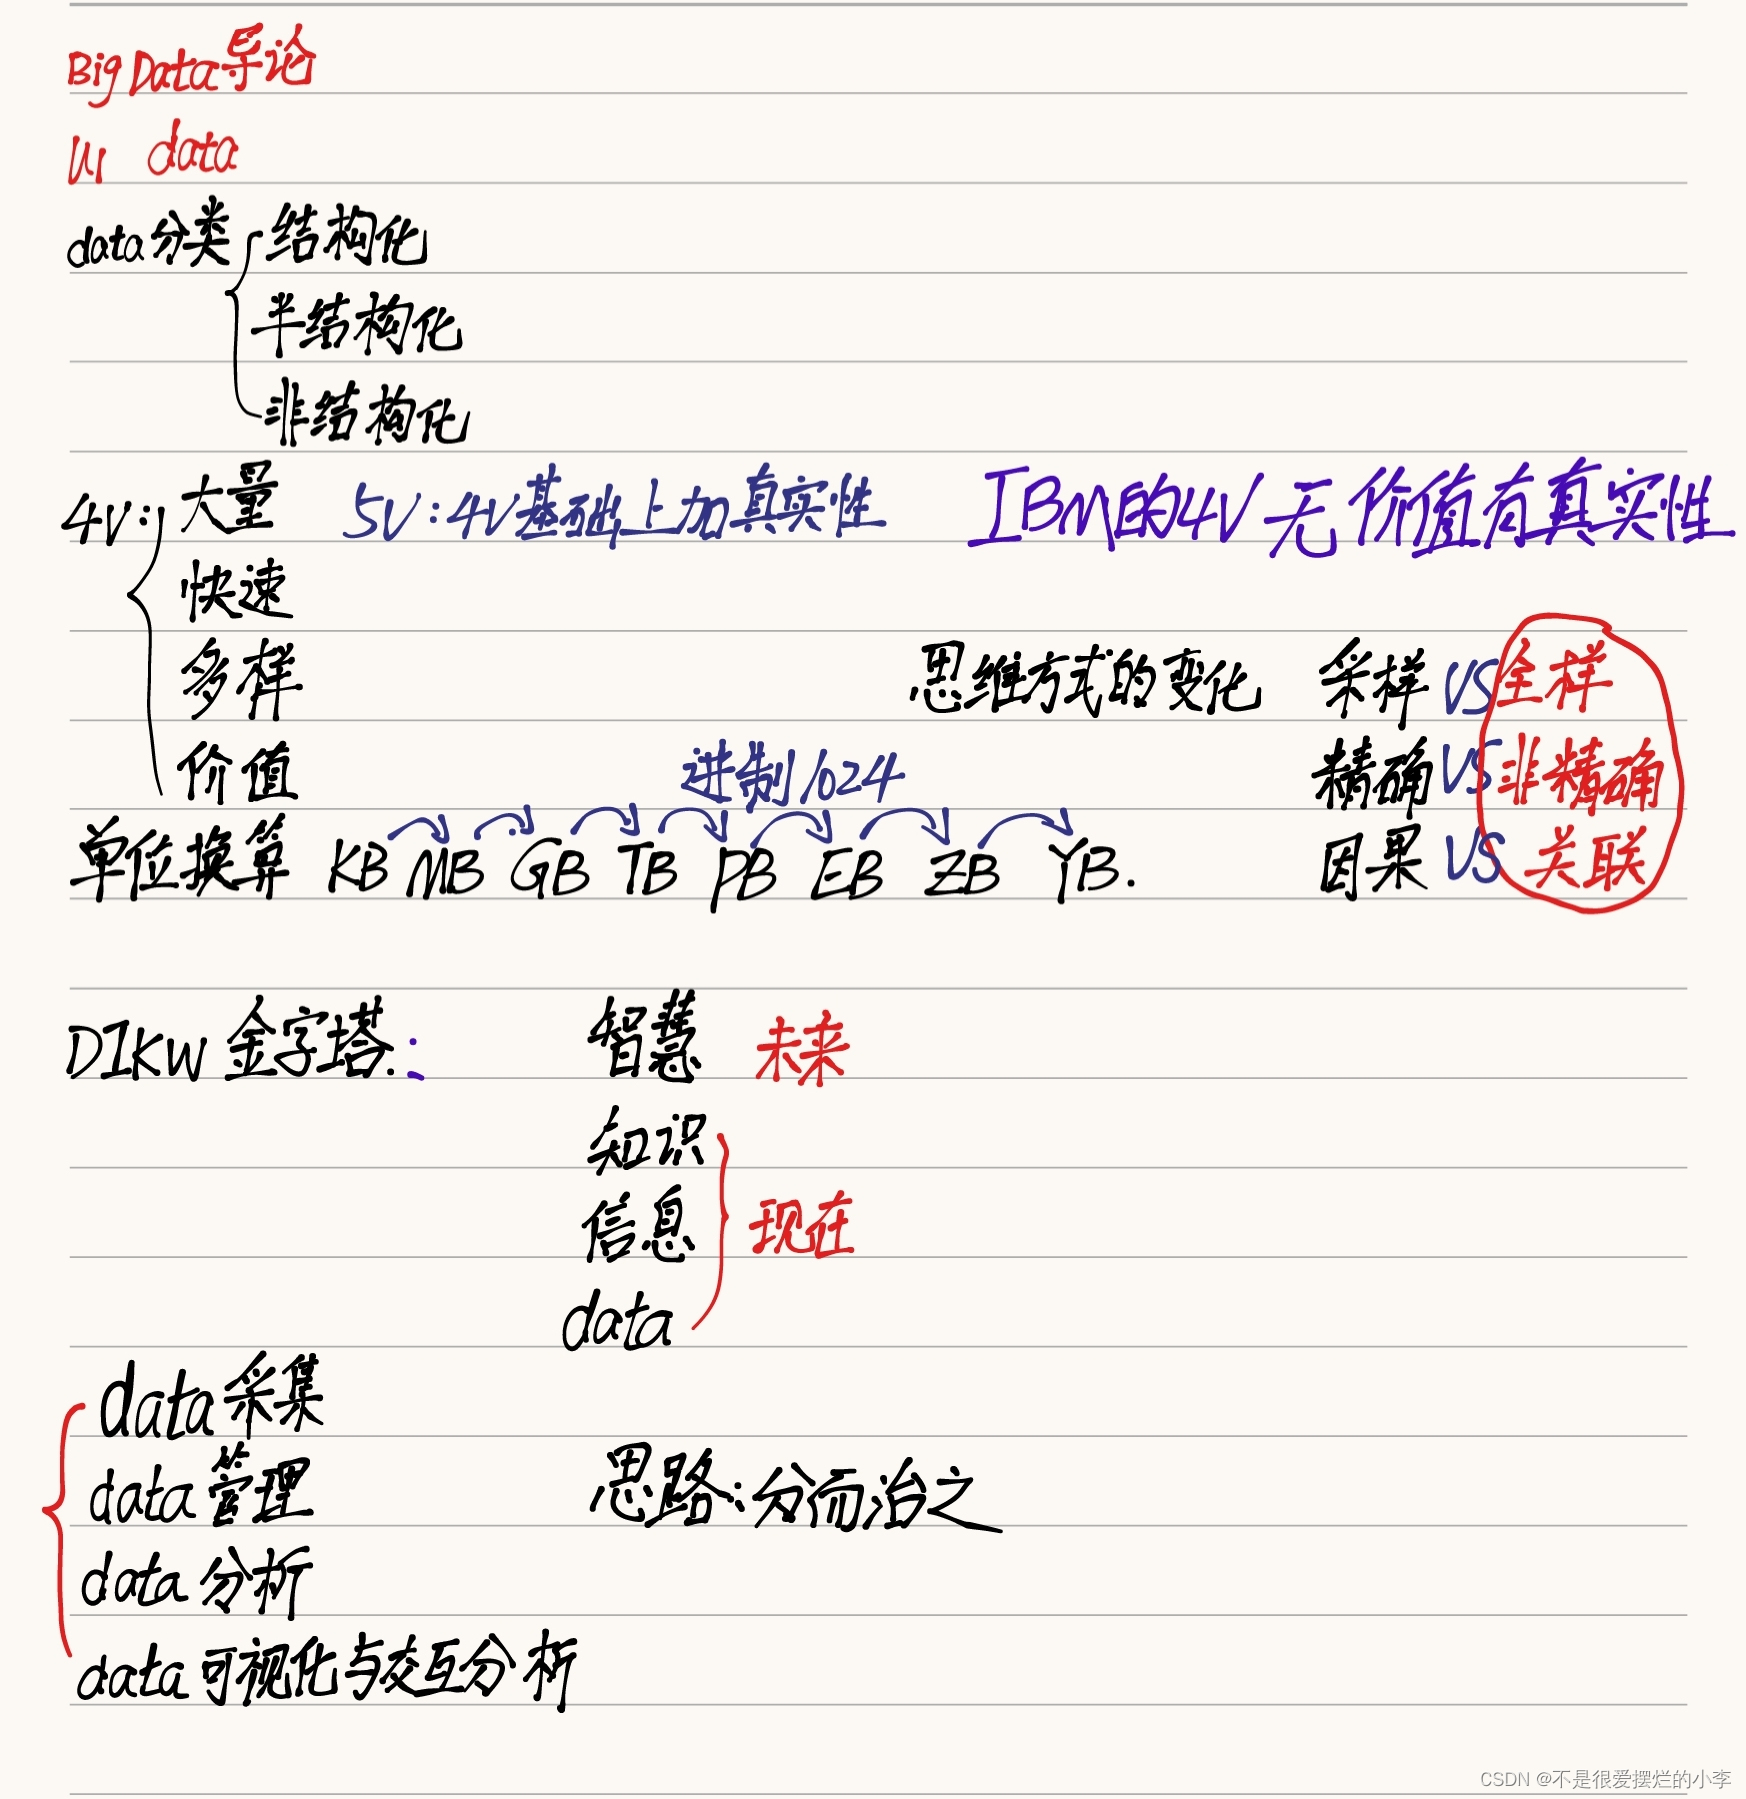 Big Data导论
data
data分类 结构化
半结构化
非结构化
4V: 大量 5V:4V基础上加真实性 IBM的4V无价值有真实性
快速
多样 思维方式的变化 采样 VS 全样
价值 进制1024 精确 VS 非精确
单位换算 KB MB GB TB PB EB ZB YB. 因果 VS 关联
DIKW 金字塔: 智慧 未来
知识
信息 现在
data
data采集
data管理 思路:分而治之
data分析
data可视化与交互分析
CSDN @不是很爱摆烂的小李